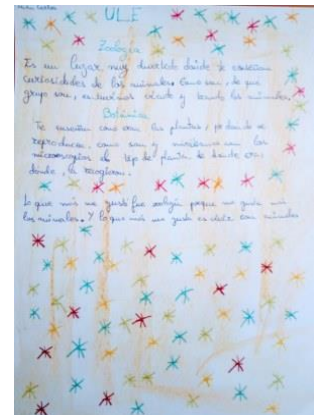 ULE
Zoología
Es un lugar muy divertido donde te enseñan
curiosidades de los animales. Como son, de que
grupo son, estuvimos viendo y tocando los animales.
Botánica
Te enseñan como son las plantas, por donde se
reproducen, como son y miramos con los
microscopios el tipo de planta, de donde era,
donde la recogieron.
Lo que más me gustó fue zoología porque me gusta más
los animales. Y lo que más me gusta es decir con animales